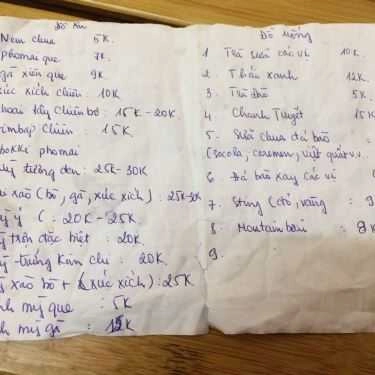 Đồ ăn
Nem chua 5K.
phomai que 7K.
gà xiên que 9K
xúc xích chiên : 10K
khoai tây chiên bơ : 15K - 20K.
kimbap chiên : 15K.
tobokki phomai
Mỳ tương đen : 25K - 30K
xào (bò, gà, xúc xích) : 25K-
Mỳ ý ( : 20K - 25K.
Mỳ trộn đặc biệt : 20K.
trứng kim chi : 20K.
xào bò + xúc xích) : 25K
bánh mỳ que : 5K
bánh mỳ gà : 15K
Đồ uống
1. Trà sữa các vị 10K
2. Thái xanh 12K
3. Trà Đào 5K
4. Chanh Tuyết 15K
5. Sữa chua đá bào
(socola, caramen, việt quất v.v
6 Đá bào xay các vị
7. Sting (đỏ, vàng) : 9
8. Mountain 8K
9.